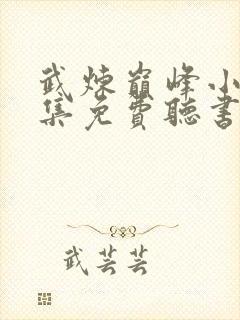 武煉巔峰小
集免費聽書
武芸芸